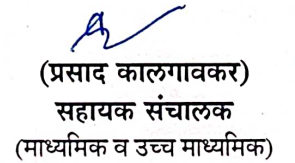 (प्रसाद कालगावकर)
सहायक संचालक
(माध्यमिक व उच्च माध्यमिक)